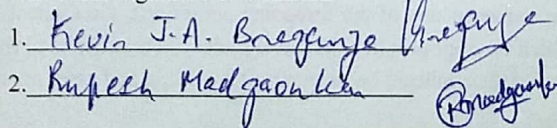 1. Kevin J.A. Braganza
2. Rupesh Madgaonkar